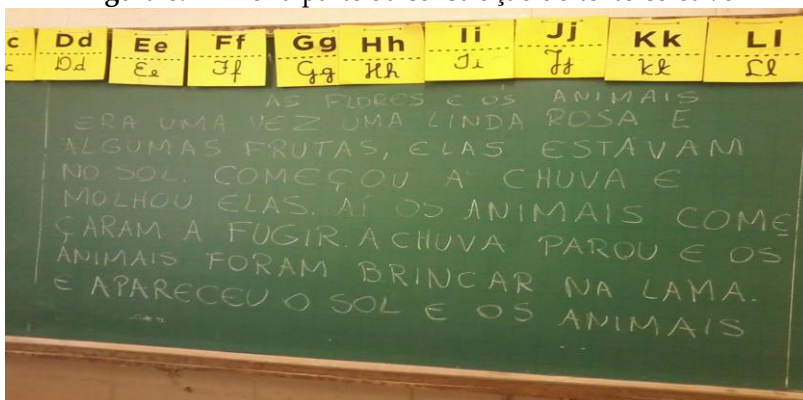 c Dd Ee Ff Gg Hh Ii Jj Kk Ll
c Dd Ee Ff Gg Hh Ii Jj Kk Ll
AS FLORES E OS ANIMAIS
ERA UMA VEZ UMA LINDA ROSA E
ALGUMAS FRUTAS, ELAS ESTAVAM
NO SOL. COMEÇOU A CHUVA E
MOLHOU ELAS. AÍ OS ANIMAIS COME
ÇARAM A FUGIR. A CHUVA PAROU E OS
ANIMAIS FORAM BRINCAR NA LAMA.
E APARECEU O SOL E OS ANIMAIS